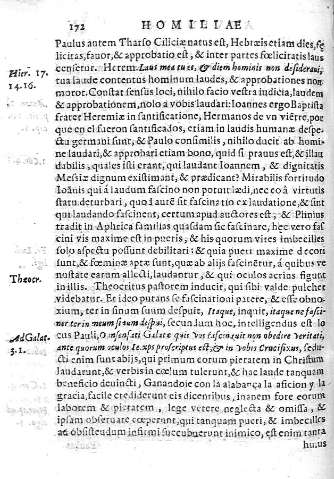 172 HOMILIAE
Paulus autem Tharso Ciliciæ natus est, Hebræis etiam dies, fe
licitas, fauor, & approbatio est, & inter partes fœlicitatis laus
censetur. Herem. Laus mea tu es, & diem hominis non desideraui,
Hier. 17.
tua laude contentus hominum laudes, & approbationes non
14.16.
moror. Constat sensus loci, nihilo facio vestra iudicia, laudem
& approbationem, nolo a vobis laudari: Ioannes ergo Baptista
frater Heremiæ in santificatione, Hermanos de vn vientre, por
que en el fueron santificados, etiam in laudis humanæ despe-
ctu germani sunt, & Paulo consimilis, nihilo ducit ab homi-
ne laudari, & approbari etiam bono, quid si prauus est, & illau
dabilis, quales isti erant, qui laudant Ioannem, & dignitatis
Messiæ dignum existimant, & prædicant? Mirabilis fortitudo
Ioãnis qui â laudum fascino non potuit lædi, nec eo â virtutis
statu deturbari, quod â aurē sit fascinatio ex laudatione, & sunt
qui laudando fascinent, certum apud auctores est, & Plinius
tradit in Aphrica familias quasdam sic fascinare, hæc vero fasci
cini vis maxime est in pueris, & his quorum vires imbecilles
solo aspectu possunt debilitari: & quia pueri maxime decori
sunt, & fœminæ artæ sunt, quæ ab alijs fascinētur, â quibus ve
nustate earum allecti, laudantur, & qui oculos acrius figunt
in illis. Theocritus pastorem inducit, qui sibi valde pulcher
Theocr.
videbatur. Et ideo putans se fascinationi patere, & esse obno-
xium, ter in sinum suum despuit, Itaque, inquit, itaque ne fasci
ner ter in meum sinum despui, secundum hoc, intelligendus est lo
cus Pauli, O insensati Galatæ quis vos fascinauit non obedire veritati,
Ad Galat.
ante quorum oculos Iesus proscriptus est, & in vobis Crucifixus, sedu-
3.1.
cti enim sunt ab ijs, qui primum eorum pietatem in Christum
laudarunt, & verbis in cœlum tulerunt, & hac laude tanquam
beneficio deuincti, Ganandoie con la alabança la aficion y la
gracia, facile crediderunt eis dicentibus, inanem fore eorum
laborem & pietatem, lege vetere neglecta & omissa, &
ipsam obseruare cœperunt, qui tanquam pueri, & imbecilles
ad obsistendum infirmi succubuerunt inimico, est enim tanta
huius